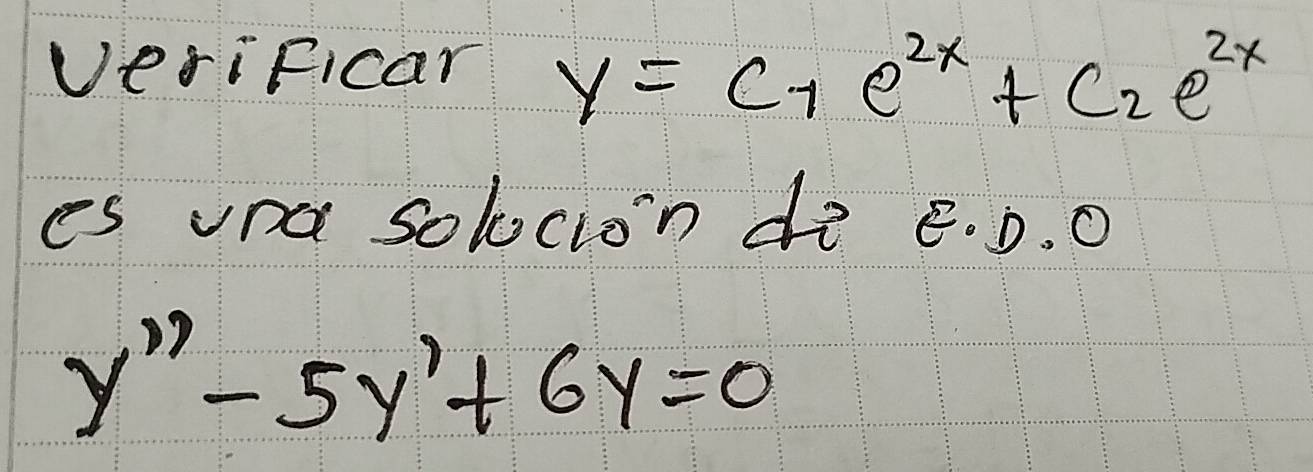 Verificar y = C₁ e²ˣ + C₂ e²ˣ
es una solución de E.D.O
y'' - 5y' + 6y = 0